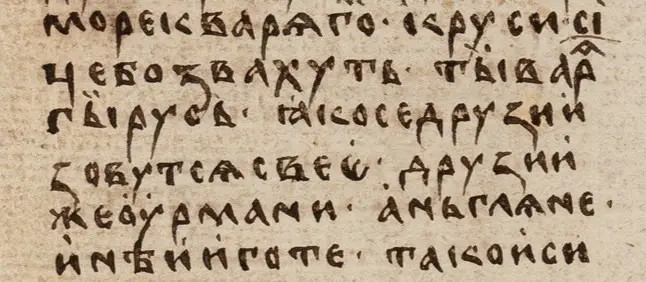 море к варѧго · к руси · сі
це бо звахуть · тъи варѧ
гъи русь · ꙗко се друзии
зовутсѧ свеѡ · друзии
же оурмани · аньглѧне ·
инѣи и готе · тако и си